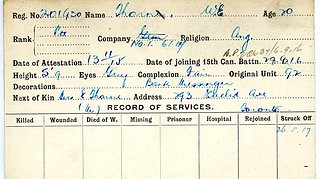 Reg. No. 201930 Name Thorne, W.E Age 20
Rank Pte Company No. 1. 6.1.17 Religion Ang.
Date of Attestation 13 11/15 Date of joining 15th Can. Battn. 29.9.16
Height 5.9 Eyes Grey Complexion Fair Original Unit 92
Decorations Bank Messenger
Next of Kin Mrs. E Thorne Address 293 Euclid Ave
(M.) RECORD OF SERVICES. Toronto
Killed Wounded Died of W. Missing Prisoner Hospital Rejoined Struck Off
26.5.17